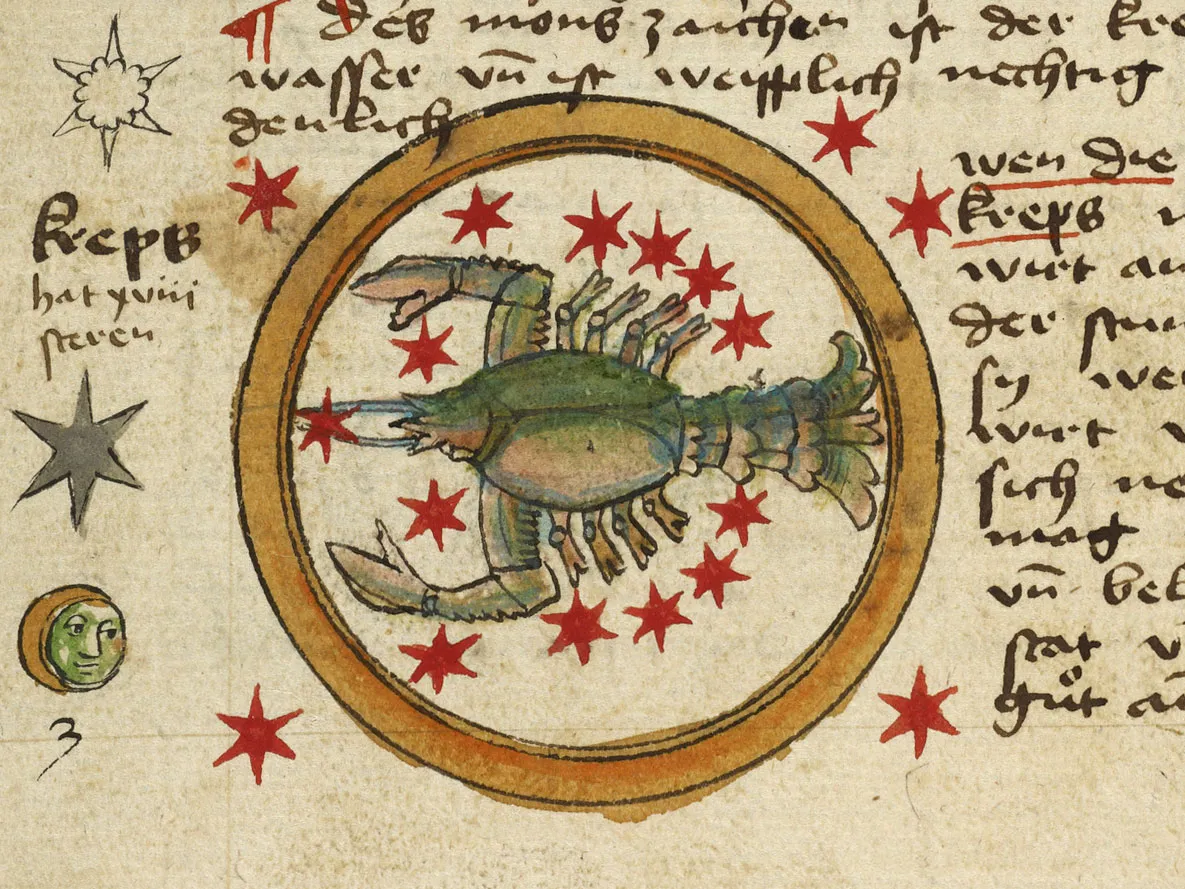 ¶ des mons zaichen ist der kre
wasser vn̄ ist weipplich nechtig
denlich
kreps
hat xviij
steren
3
wen die
kreps
wirt au
der stun
sy we
wirt v
sich ne
mag
vn̄ bel
stat v
gůt an